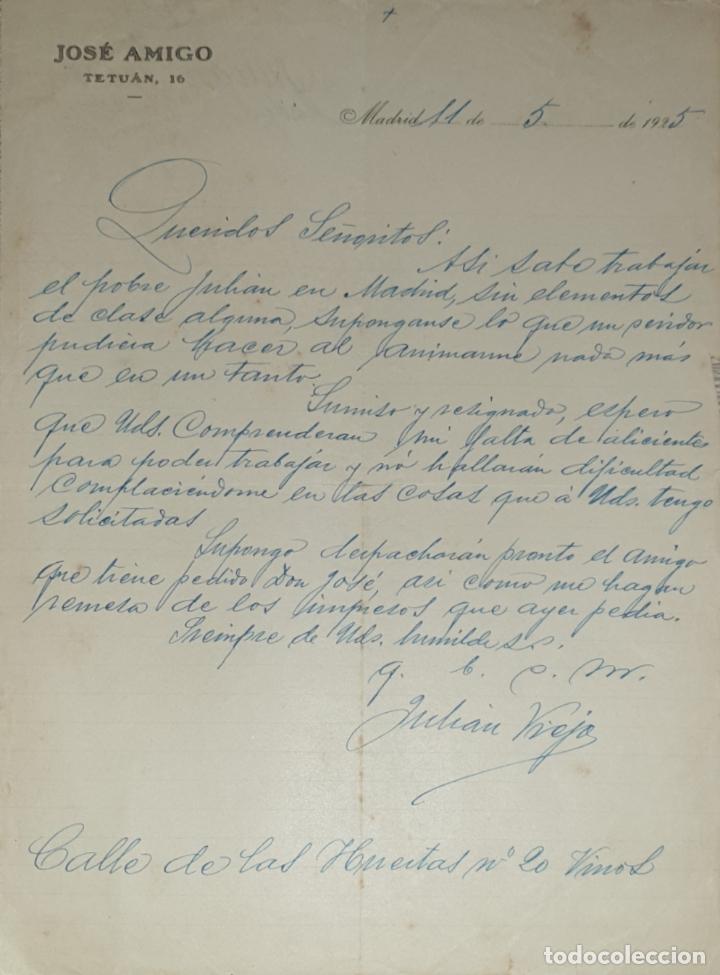 +
JOSÉ AMIGO
TETUÁN, 16
Madrid 11 de 5 de 1925
Queridos Señoritos:
Asi sabe trabajar
el pobre Julian en Madrid, sin elementos
de clase alguna, suponganse lo que un servidor
pudiera hacer al animarme nada más
que en un tanto.
Sumiso y resignado, espero
que Uds. Comprenderan mi falta de alicientes
para poder trabajar y nó hallarán dificultad
complaciéndome en las cosas que á Uds. tengo
solicitadas
Supongo despacharán pronto el amigo
que tiene pedido Don José, asi como me hagan
remesa de los impresos que ayer pedia.
Siempre de Uds. humilde s.s.
q. b. s. m.
Julián Viejo
Calle de las Huertas nº 20 Vinos
todocoleccion
todocoleccion.net